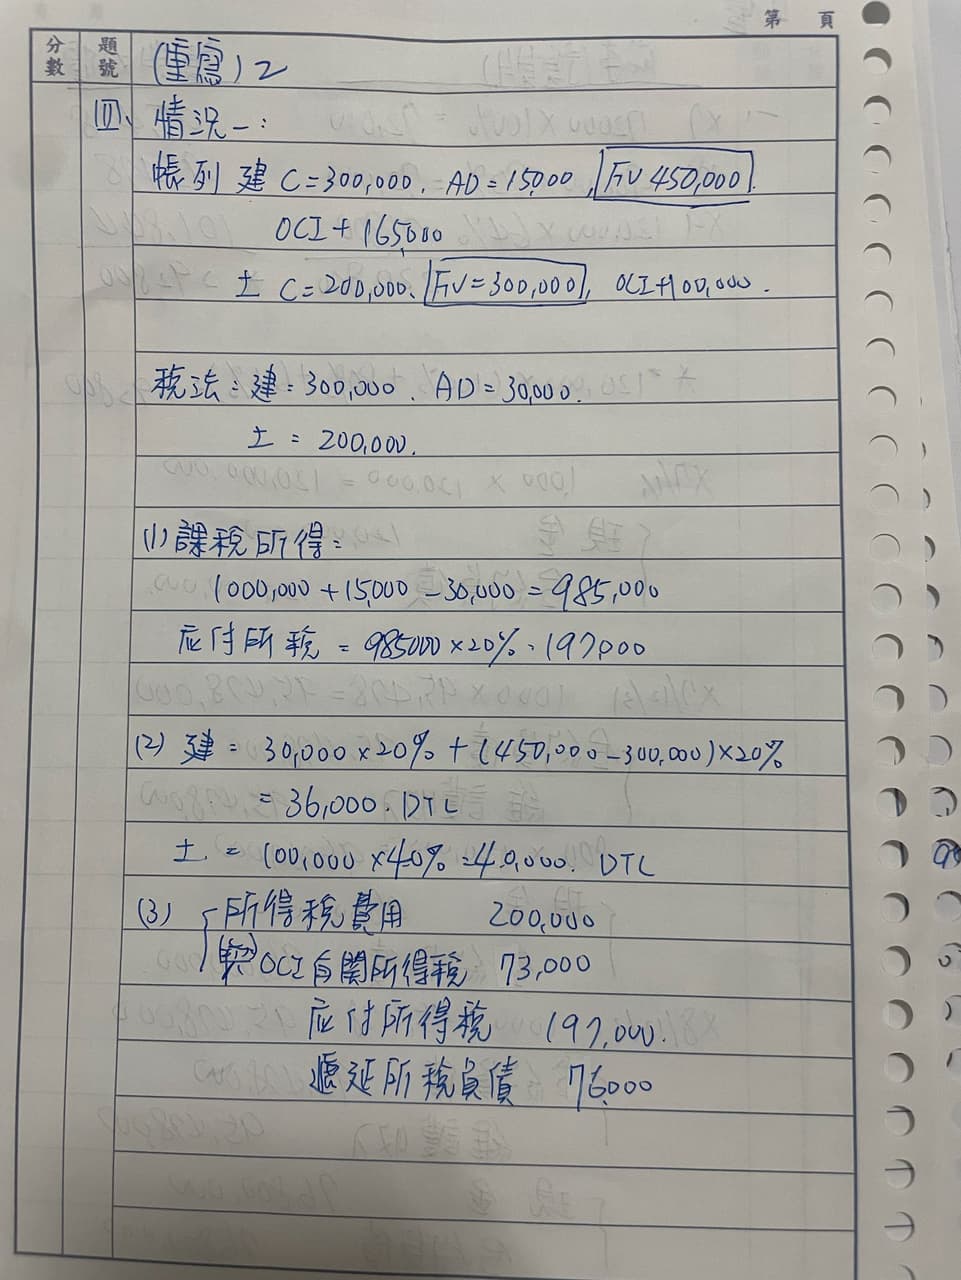 第 頁
分數 題號 (重寫) 2
四、情況一:
帳列 建 C=300,000. AD=15,000, FV 450,000.
OCI+165,000
土 C=200,000. FV=300,000, OCI+100,000.
稅法: 建=300,000. AD=30,000.
土 = 200,000.
(1) 課稅所得=
1000,000+15,000-30,000=985,000
应付所稅 = 985000×20%=197,000
(2) 建= 30,000×20%+(450,000-300,000)×20%
=36,000. DTL
土. =100,000×40%=40,000. DTL
(3) 所得稅費用 200,000
(與)OCI有関所得稅 73,000
应付所得稅 197,000.
遞延所稅負債 76,000